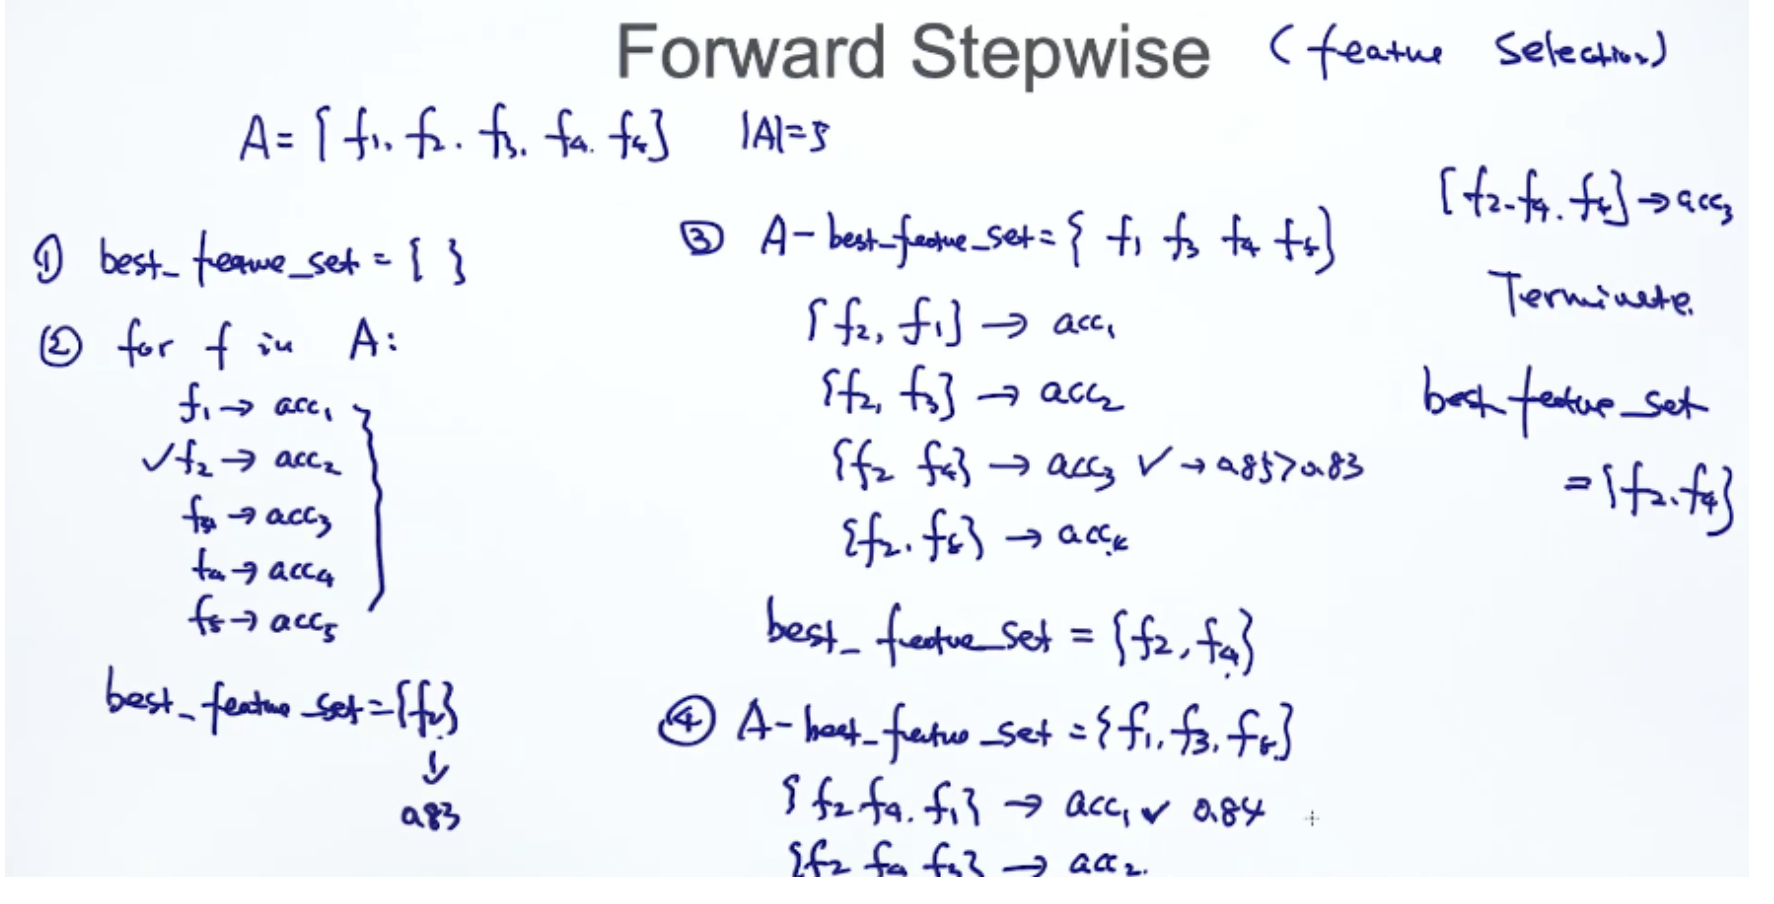 Forward Stepwise (feature Selection)
A = {f₁, f₂, f₃, f₄, f₅} |A|=5
① best_feature_set = { }
② for f in A:
f₁ → acc₁
✓f₂ → acc₂
f₃ → acc₃
f₄ → acc₄
f₅ → acc₅
best_feature_set = {f₂}
↓
0.83
③ A-best_feature_set = { f₁ f₃ f₄ f₅}
{f₂, f₁} → acc₁
{f₂, f₃} → acc₂
{f₂ f₄} → acc₃ ✓ → 0.85>0.83
{f₂. f₅} → acc₄
best_feature_set = {f₂, f₄}
④ A-best_feature_set = {f₁, f₃, f₅}
{f₂ f₄. f₁} → acc₁ ✓ 0.84
{f₂ f₄ f₃} → acc₂.
{f₂. f₄. f₅} → acc₃
Terminate.
best_feature_set
= {f₂. f₄}